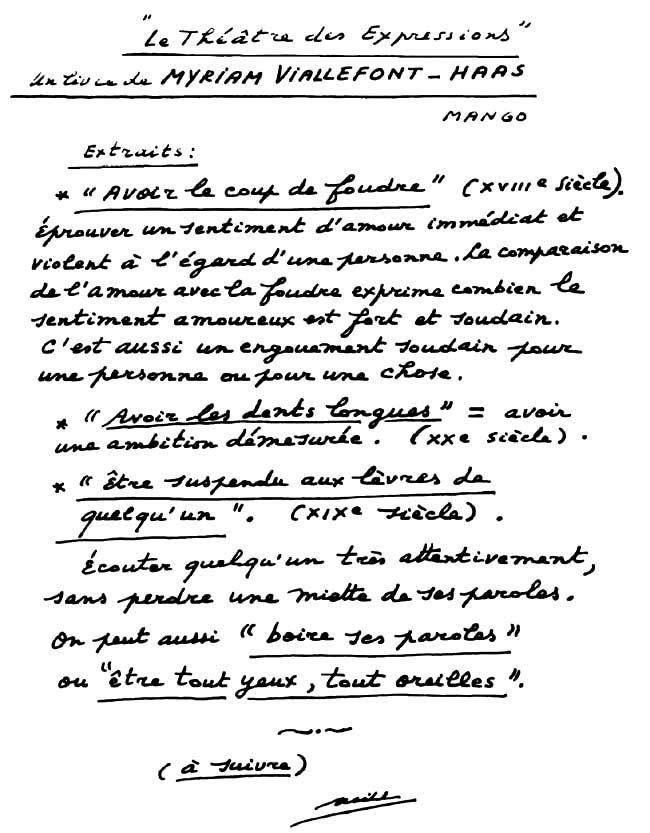 "Le Théâtre des Expressions"
Un livre de MYRIAM VIALLEFONT-HAAS
MANGO
Extraits:
* "Avoir le coup de foudre" (XVIIIe siècle).
Éprouver un sentiment d'amour immédiat et
violent à l'égard d'une personne. La comparaison
de l'amour avec la foudre exprime combien le
sentiment amoureux est fort et soudain.
C'est aussi un engouement soudain pour
une personne ou pour une chose.
* "Avoir les dents longues" = avoir
une ambition démesurée. (XXe siècle).
* "être suspendu aux lèvres de
quelqu'un". (XIXe siècle).
Écouter quelqu'un très attentivement,
sans perdre une miette de ses paroles.
On peut aussi "boire ses paroles"
ou "être tout yeux, tout oreilles".
(à suivre)